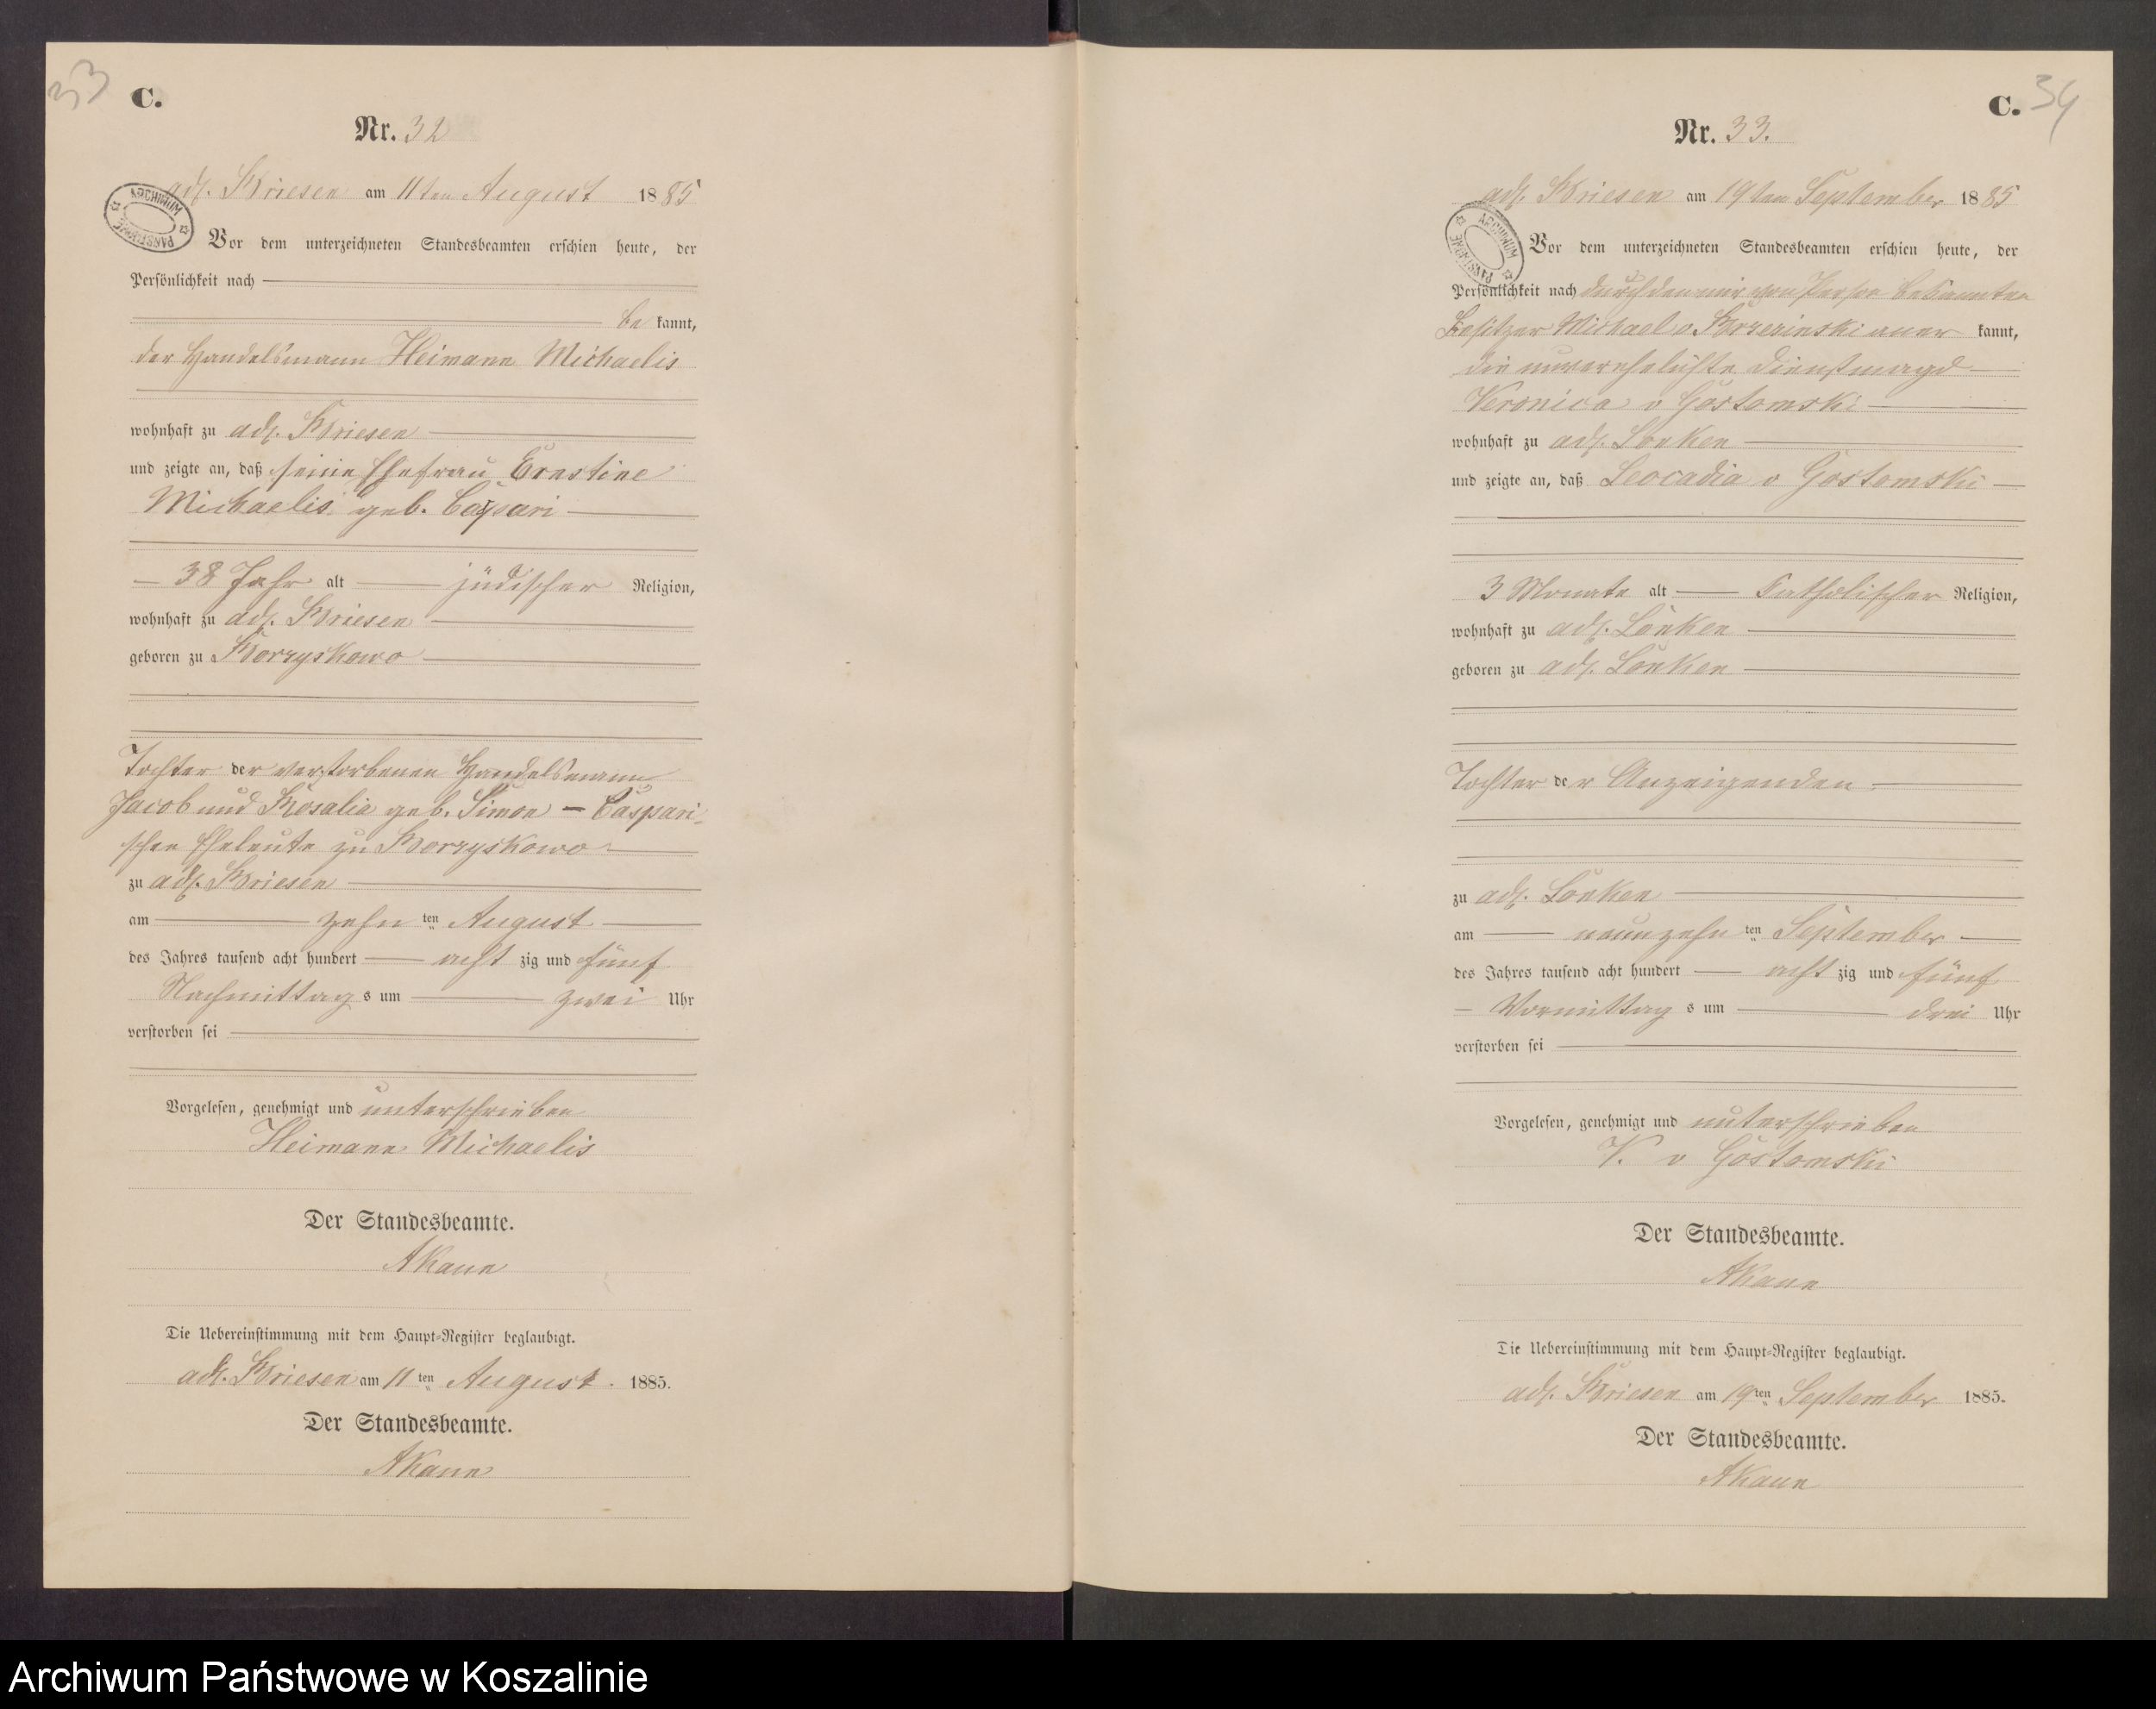 33
C.
Nr. 32
adl. Briesen am 11ten August 1885
ARCHIWUM PAŃSTWOWE
Vor dem unterzeichneten Standesbeamten erschien heute, der
Persönlichkeit nach
be kannt,
der Handelsmann Heimann Michaelis
wohnhaft zu adl. Briesen
und zeigte an, daß seine Ehefrau Ernestine
Michaelis geb. Caspari
38 Jahr alt jüdischer Religion,
wohnhaft zu adl. Briesen
geboren zu Borzyskowo
Tochter der verstorbenen Handelsmann
Jacob und Rosalie geb. Simon – Caspari-
schen Eheleute zu Borzyskowo
zu adl. Briesen
am zehn ten August
des Jahres tausend acht hundert acht zig und fünf
Nachmittag s um zwei Uhr
verstorben sei
Vorgelesen, genehmigt und unterschrieben
Heimann Michaelis
Der Standesbeamte.
Die Uebereinstimmung mit dem Haupt-Register beglaubigt.
adl. Briesen am 11 ten August. 1885.
Der Standesbeamte.
34
C.
Nr. 33.
adl. Briesen am 19ten September 1885
ARCHIWUM PAŃSTWOWE
Vor dem unterzeichneten Standesbeamten erschien heute, der
Persönlichkeit nach durch den mir von Person bekannten
Besitzer Michael v. Brzezinski aner kannt,
die unverehelichte Dienstmagd
Veronica v Gostomski
wohnhaft zu adl. Lonken
und zeigte an, daß Leocadia v Gostomski
3 Monate alt katholischer Religion,
wohnhaft zu adl. Lonken
geboren zu adl. Lonken
Tochter de r Anzeigenden
zu adl. Lonken
am neunzehn ten September
des Jahres tausend acht hundert acht zig und fünf
Vormittag s um drei Uhr
verstorben sei
Vorgelesen, genehmigt und unterschrieben
V. v Gostomski
Der Standesbeamte.
Die Uebereinstimmung mit dem Haupt-Register beglaubigt.
adl. Briesen am 19 ten September 1885.
Der Standesbeamte.
Archiwum Państwowe w Koszalinie